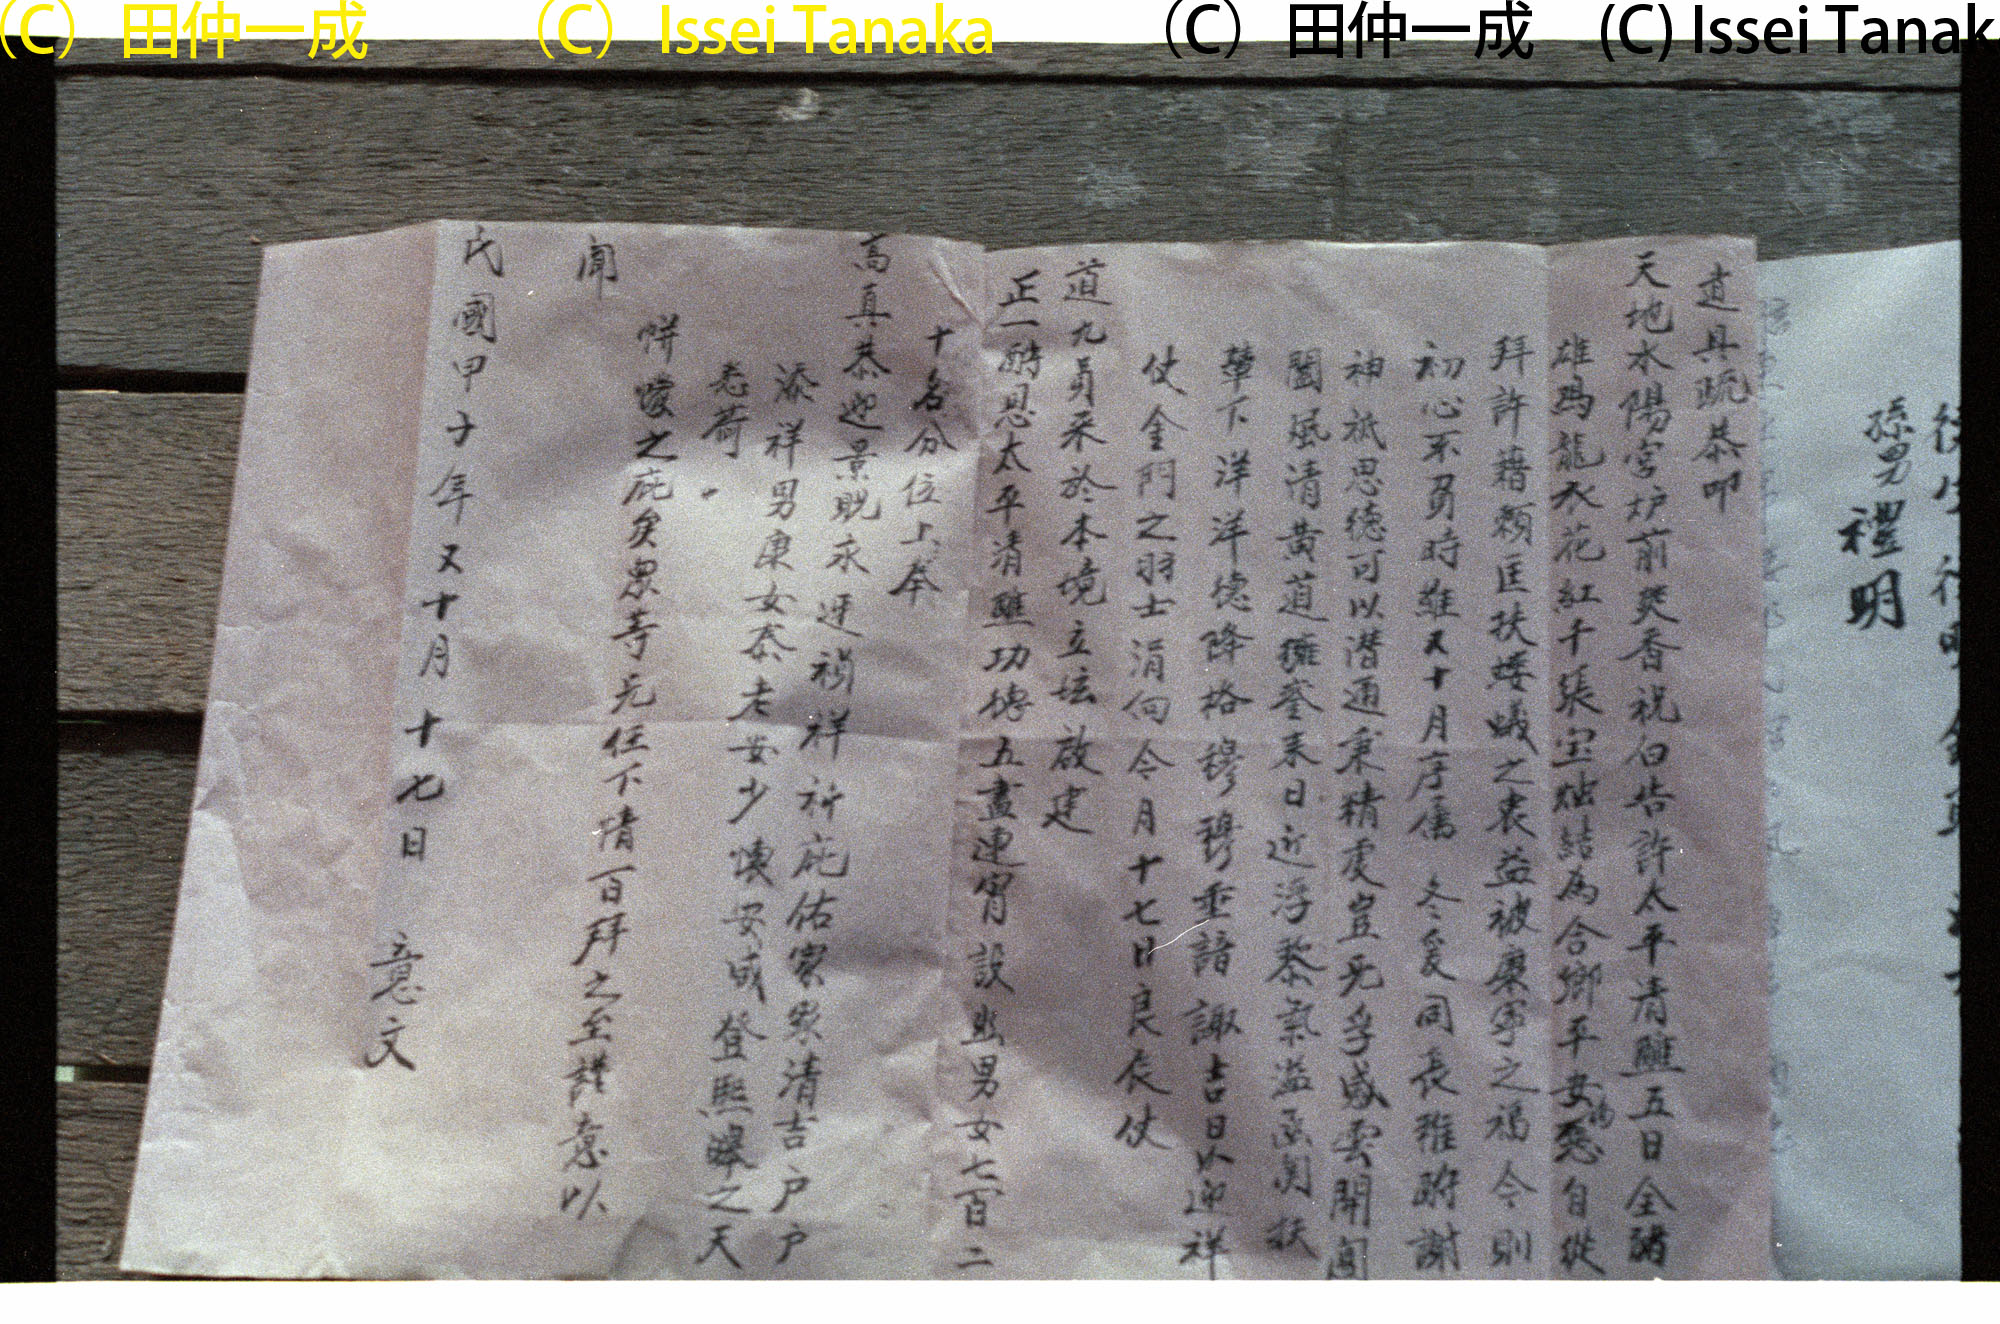 (C) 田仲一成 (C) Issei Tanaka (C) 田仲一成 (C) Issei Tanak
孫男禮明
道具疏恭叩
天地水陽宮炉前焚香祝白告許太平清醮五日全豬
雄鸡龍衣花紅千張宝烛結為合鄉平安福 自從
拜許藉賴匡扶 蟻之衷益被康寧之福今則
初心不負時維又十月序属冬爰同長稚酧謝
神祇思德可以潜通秉精虔豈无孚感雲開閶
闔風清黄道擁 來日近浮黎氣溢函関扶
輦下洋洋德降格穆穆垂 諏吉日以迎祥
仗金門之羽士涓向今月十七日良辰仗
道九員来於本境立坛啟建
正一酧恩太平清醮功德五晝連宵設 男女七百二
十名分位上奉
高真恭迎景貺永迓禎祥祈庇佑家家清吉户户
添祥男康女泰老安少懷安咸登熙皞之天
悉荷
帡幪之庇矣眾等无任下情百拜之至謹意以
聞
民國甲子年又十月十七日 意文